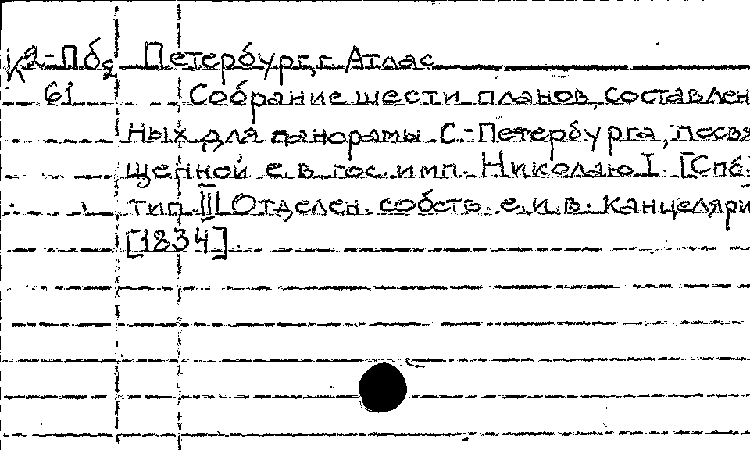 К2-Пб2 Петербург, г. Атлас
61 Собрание шести планов составлен
ных для панорамы С.-Петербурга, посвя
щенной е.в. гос. имп. Николаю I. [Спб.
тип. III Отделен. собств. е.и.в. канцеляри
[1834].